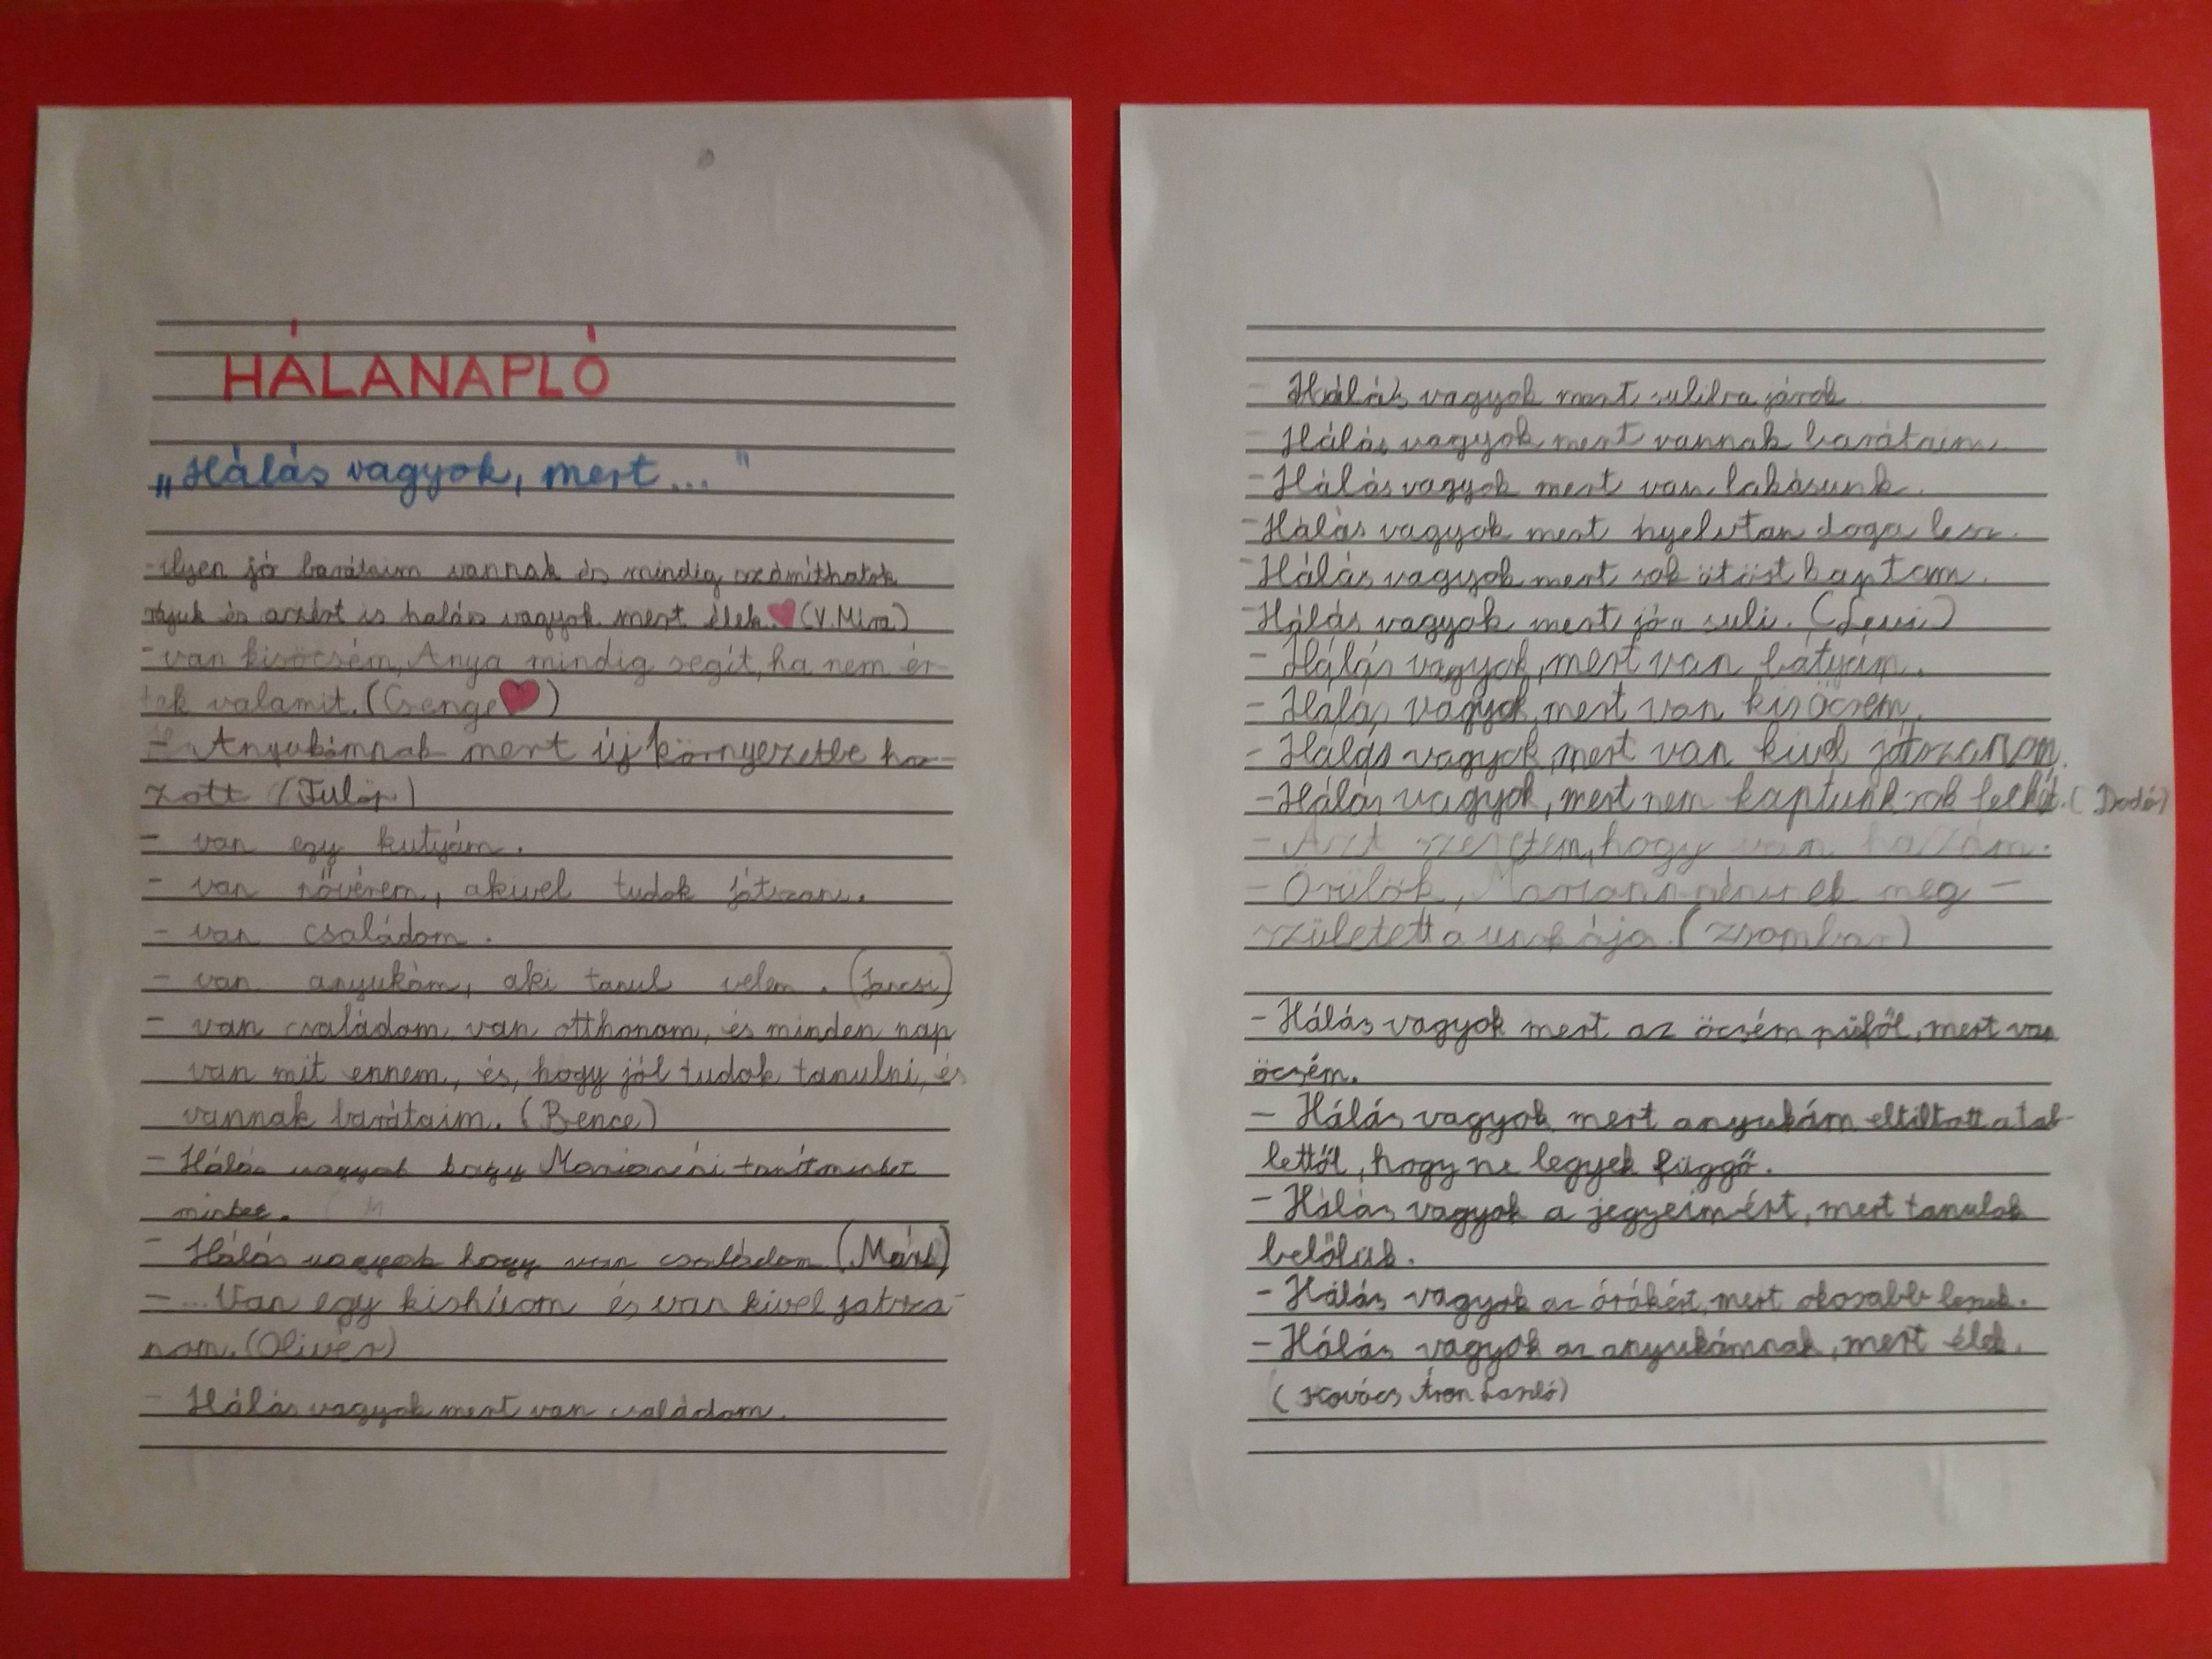 HÁLANAPLÓ
„Hálás vagyok, mert..."
- ilyen jó barátaim vannak és mindig számíthatok
rájuk és azért is halás vagyok mert élek. (V. Mira)
- van kisöcsém, Anya mindig segít, ha nem ér-
tek valamit. (Csenge)
- Anyukámnak mert új környezetbe ho-
zott (Fülöp)
- van egy kutyám.
- van nővérem, akivel tudok játszani.
- van családom.
- van anyukám, aki tanul velem. (Jancsi)
- van családom, van otthonom, és minden nap
van mit ennem, és, hogy jól tudok tanulni, és
vannak barátaim. (Bence)
- Hálás vagyok hogy tanít minket
minket.
- Hálás vagyok hogy van családom (Márk)
- ... Van egy kishúom és van kivel jatsza-
nom. (Olivér)
- Hálás vagyok mert van családom.
- Hálás vagyok mert járok
- Hálás vagyok mert vannak barátaim.
- Hálás vagyok mert van lakásunk.
- Hálás vagyok mert nyelvtan doga lesz.
- Hálás vagyok mert sok ötöst kaptam.
- Hálás vagyok mert jó a suli. (Levi)
- Hálás vagyok, mert van bátyám.
- Hálás vagyok, mert van kisöcsem.
- Hálás vagyok, mert van kivel játszanom.
- Hálás vagyok, mert nem kaptunk sok leckét. (Dodó)
- Azt szeretem, hogy van hazám.
- Örülök, Mariann néninek meg-
született a unokája. (Zsombor)
- Hálás vagyok mert az öcsém püföl, mert van
öcsém.
- Hálás vagyok mert anyukám eltiltott a tab-
lettől, hogy ne legyek függő.
- Hálás vagyok a jegyeimért, mert tanulok
belőlük.
- Hálás vagyok az órákért, mert okosabb leszek.
- Hálás vagyok az anyukámnak, mert élek.
(Kovács Áron László)